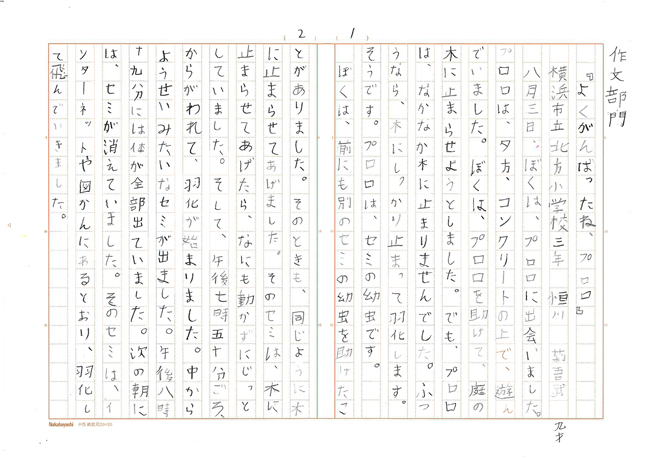 作文部門
( 1 )
『よくがんばったね、プロロ』
横浜市立北方小学校三年 恒川
九才
八月三日、ぼくは、プロロに出会いました。
プロロは、夕方、コンクリートの上で、遊ん
でいました。ぼくは、プロロを助けて、庭の
木に止まらせようとしました。でも、プロロ
は、なかなか木に止まりませんでした。ふつ
うなら、木にしっかり止まって羽化します。
そうです。プロロは、セミの幼虫です。
ぼくは、前にも別のセミの幼虫を助けたこ
( 2 )
とがありました。そのときも、同じように木
に止まらせてあげました。そのセミは、木に
止まらせてあげたら、なにも動かずにじっと
していました。そして、午後七時五十分ごろ、
からがわれて、羽化が始まりました。中から
ようせいみたいなセミが出ました。午後八時
十九分には体が全部出ていました。次の朝に
は、セミが消えていました。そのセミは、イ
ンターネットや図かんにあるとおり、羽化し
て飛んでいきました。
Nakabayashi